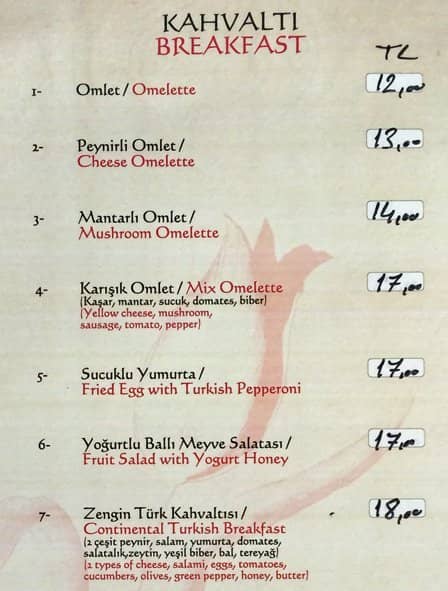 KAHVALTI
BREAKFAST
TL
1- Omlet / Omelette 12,00
2- Peynirli Omlet / 13,00
Cheese Omelette
3- Mantarlı Omlet / 14,00
Mushroom Omelette
4- Karışık Omlet / Mix Omelette 17,00
(Kaşar, mantar, sucuk, domates, biber)
(Yellow cheese, mushroom,
sausage, tomato, pepper)
5- Sucuklu Yumurta / 17,00
Fried Egg with Turkish Pepperoni
6- Yoğurtlu Ballı Meyve Salatası / 17,00
Fruit Salad with Yogurt Honey
7- Zengin Türk Kahvaltısı / 18,00
Continental Turkish Breakfast
(2 çeşit peynir, salam, yumurta, domates,
salatalık,zeytin, yeşil biber, bal, tereyağ)
(2 types of cheese, salami, eggs, tomatoes,
cucumbers, olives, green pepper, honey, butter)